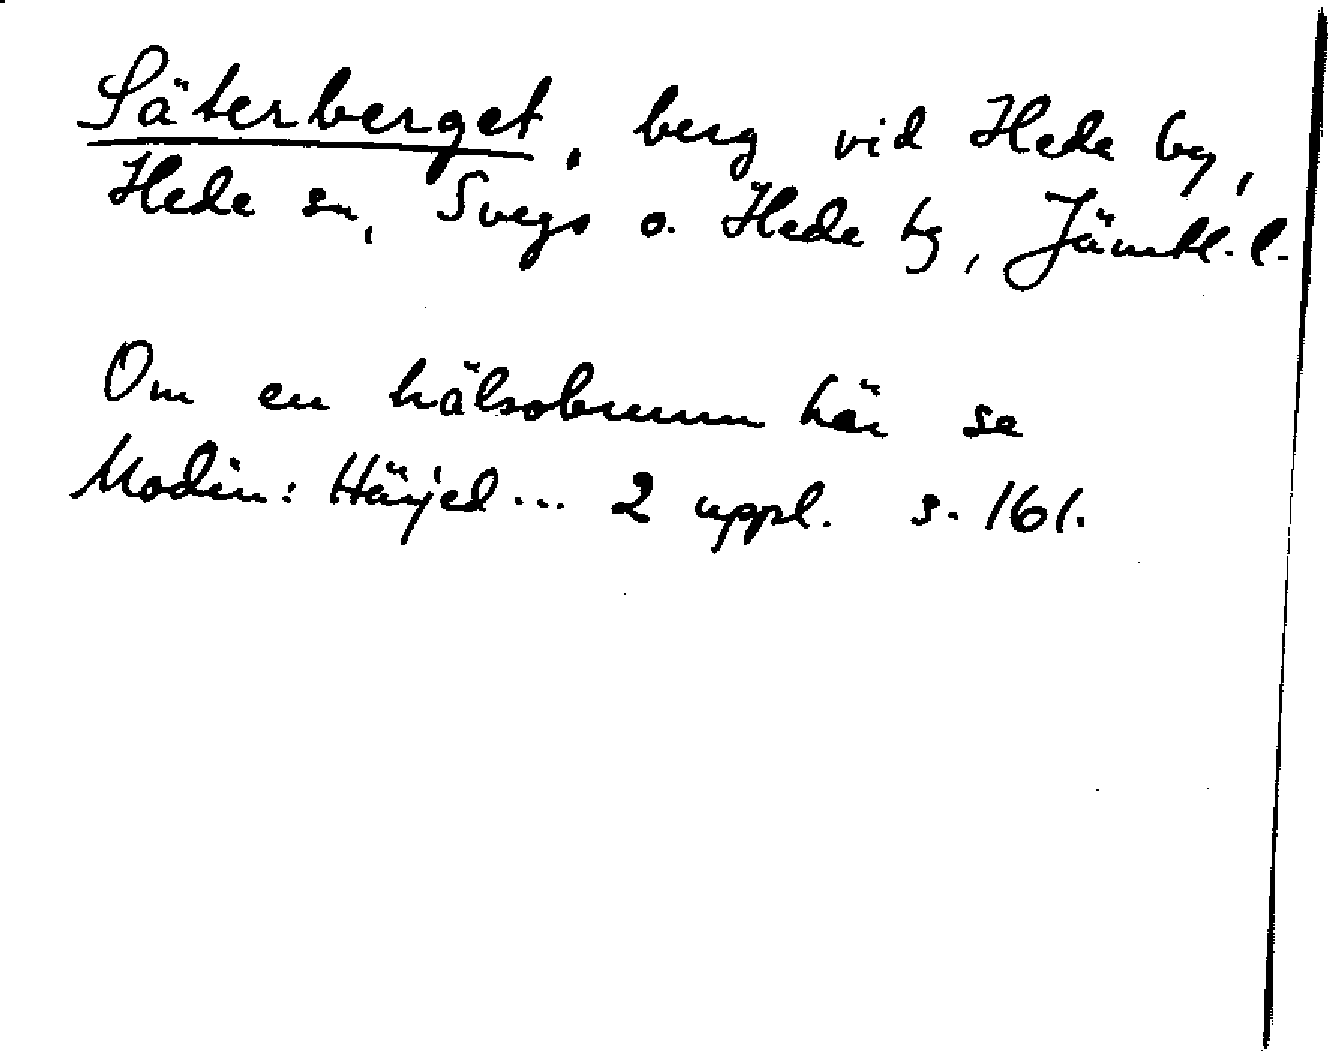 Säterberget, berg vid Hede by,
Hede sn, Svegs o. Hede tg, Jämtl. l.
Om en hälsobrunn här se
Modin: Härjed... 2 uppl. s. 161.